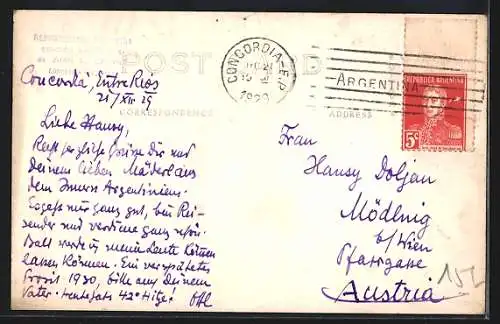 POST CARD
CORRESPONDENCE
ADDRESS
CONCORDIA-E.R.
1929
ARGENTINA
REPUBLICA ARGENTINA
5c
Concordia, Entre Rios
21/XII 29
Liebe Hansy,
Recht herzliche Grüsse Dir und
Deinem lieben Mäderl aus
dem Innern Argentiniens.
Es geht mir ganz gut, bin Rei-
sender und verdiene ganz schön.
Bald werde ich meine Leute kommen
lassen können. Ein verspätetes
Prosit 1930, bitte auch Deinem
Vater. Heute hats 42° Hitze!
Frau
Hansy Doljan
Mödling
b/Wien
Pfarrgasse
Austria